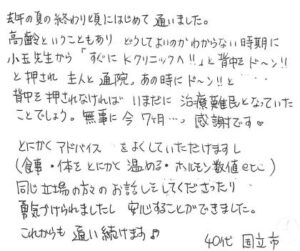 去年の夏の終わり頃にはじめて通いました。
高齢ということもあり どうしてよいのかわからない時期に
小玉先生から「すぐにKクリニックへ!!」と背中をドーン!!
と押され 主人と通院。あの時にドーン!!と・・・
背中を押されなければ いまだに 治療難民となっていた
ことでしょう。無事に今7ヶ月…。感謝です♡
とにかく アドバイス をよくしていただけますし
(食事・体をとにかく温める・ホルモン数値etc)
同じ立場の方のお話しをしてくださったり
勇気づけられましたし 安心することができました。
これからも 通い続けます♪
40代 国立市